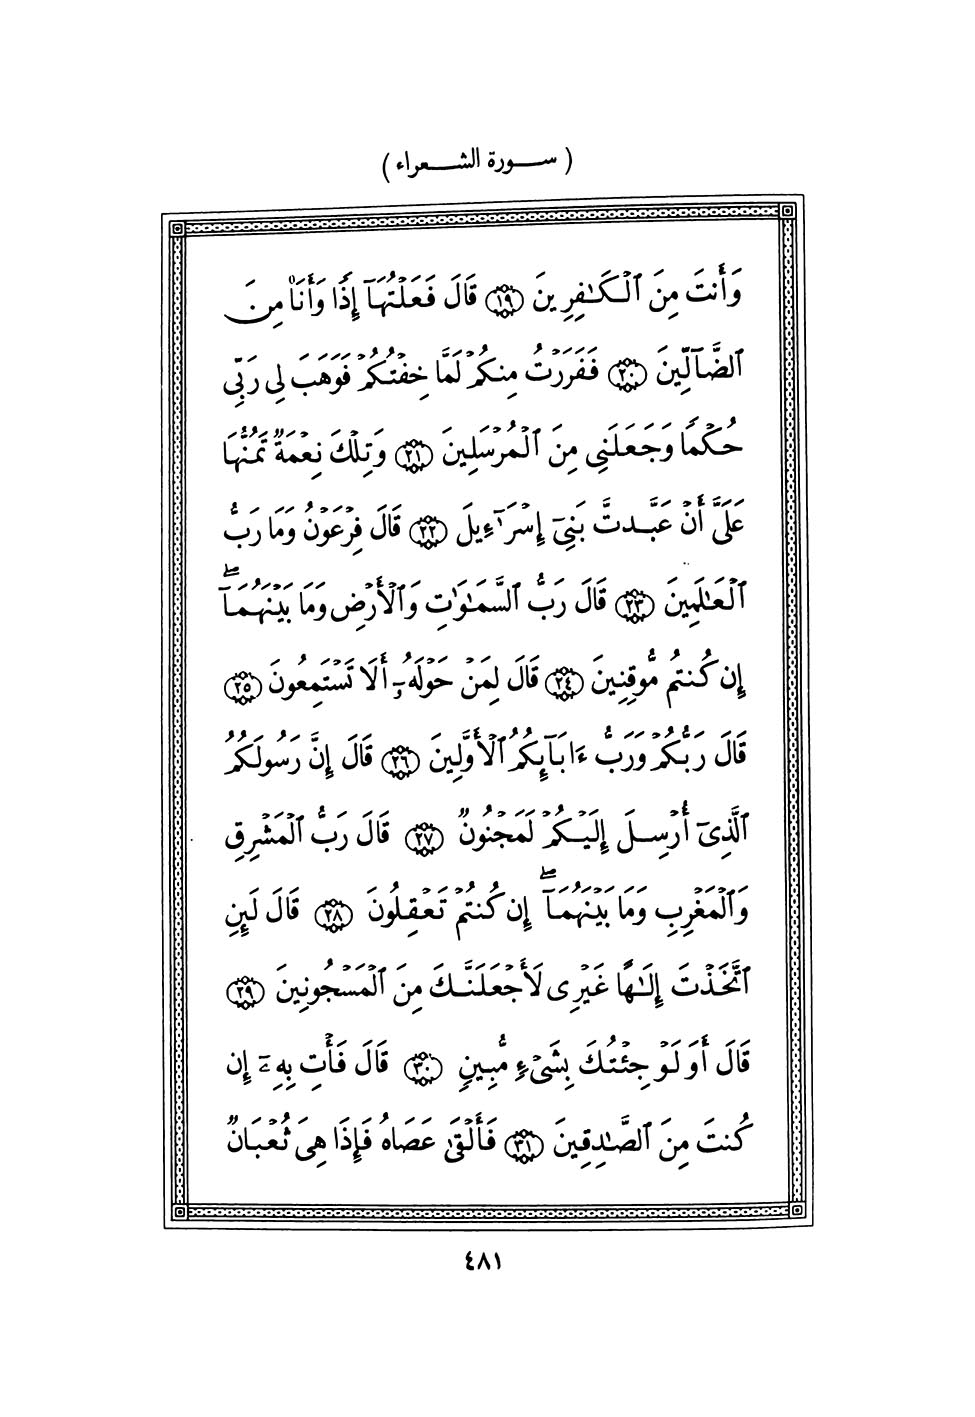 ( ســـورة الشـــعراء )
وَأَنتَ مِنَ ٱلۡكَـٰفِرِينَ ﴿١٩﴾ قَالَ فَعَلۡتُهَآ إِذًا وَأَنَا۠ مِنَ
ٱلضَّآلِّينَ ﴿٢٠﴾ فَفَرَرۡتُ مِنكُمۡ لَمَّا خِفۡتُكُمۡ فَوَهَبَ لِى رَبِّى
حُكۡمًا وَجَعَلَنِى مِنَ ٱلۡمُرۡسَلِينَ ﴿٢١﴾ وَتِلۡكَ نِعۡمَةٌ تَمُنُّهَا
عَلَىَّ أَنۡ عَبَّدتَّ بَنِىٓ إِسۡرَٰٓءِيلَ ﴿٢٢﴾ قَالَ فِرۡعَوۡنُ وَمَا رَبُّ
ٱلۡعَـٰلَمِينَ ﴿٢٣﴾ قَالَ رَبُّ ٱلسَّمَـٰوَٰتِ وَٱلۡأَرۡضِ وَمَا بَيۡنَهُمَآۖ
إِن كُنتُم مُّوقِنِينَ ﴿٢٤﴾ قَالَ لِمَنۡ حَوۡلَهُۥٓ أَلَا تَسۡتَمِعُونَ ﴿٢٥﴾
قَالَ رَبُّكُمۡ وَرَبُّ ءَابَآئِكُمُ ٱلۡأَوَّلِينَ ﴿٢٦﴾ قَالَ إِنَّ رَسُولَكُمُ
ٱلَّذِىٓ أُرۡسِلَ إِلَيۡكُمۡ لَمَجۡنُونٌ ﴿٢٧﴾ قَالَ رَبُّ ٱلۡمَشۡرِقِ
وَٱلۡمَغۡرِبِ وَمَا بَيۡنَهُمَآۖ إِن كُنتُمۡ تَعۡقِلُونَ ﴿٢٨﴾ قَالَ لَئِنِ
ٱتَّخَذۡتَ إِلَـٰهًا غَيۡرِى لَأَجۡعَلَنَّكَ مِنَ ٱلۡمَسۡجُونِينَ ﴿٢٩﴾
قَالَ أَوَلَوۡ جِئۡتُكَ بِشَىۡءٍ مُّبِينٍ ﴿٣٠﴾ قَالَ فَأۡتِ بِهِۦٓ إِن
كُنتَ مِنَ ٱلصَّـٰدِقِينَ ﴿٣١﴾ فَأَلۡقَىٰ عَصَاهُ فَإِذَا هِىَ ثُعۡبَانٌ
٤٨١